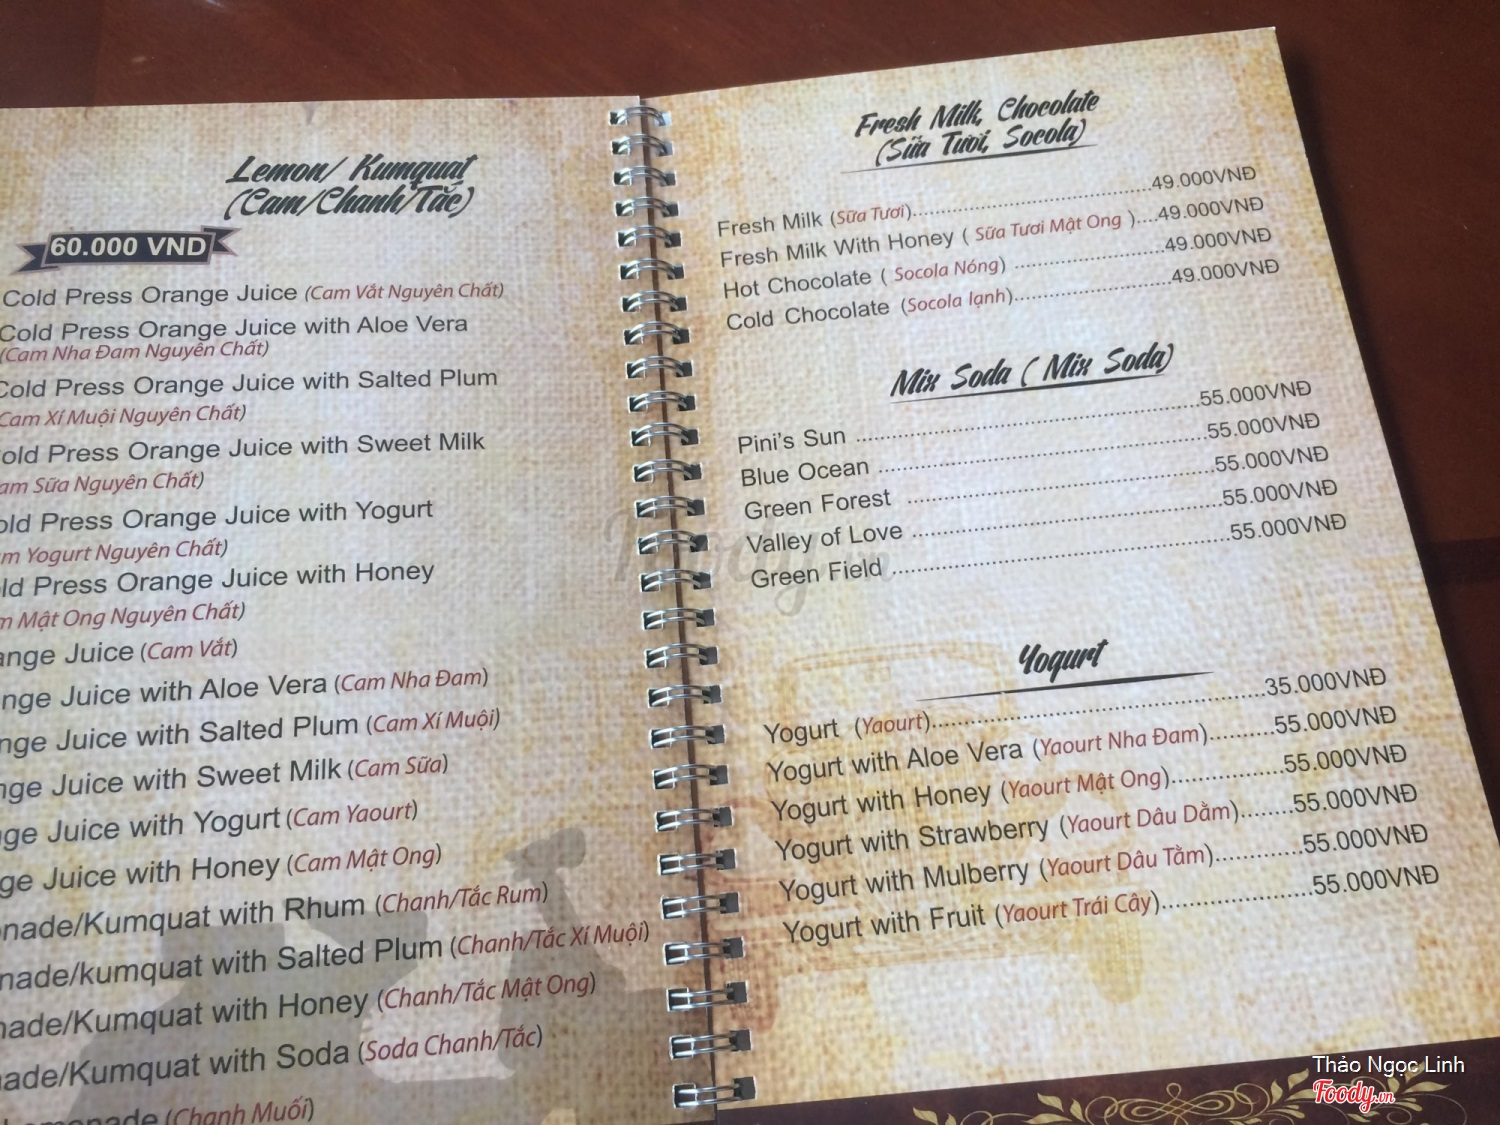 Lemon/ Kumquat
(Cam/Chanh/Tắc)
60.000 VND
Cold Press Orange Juice (Cam Vắt Nguyên Chất)
Cold Press Orange Juice with Aloe Vera
(Cam Nha Đam Nguyên Chất)
Cold Press Orange Juice with Salted Plum
(Cam Xí Muội Nguyên Chất)
Press Orange Juice with Sweet Milk
Sữa Nguyên Chất)
Press Orange Juice with Yogurt
Yogurt Nguyên Chất)
Press Orange Juice with Honey
Mật Ong Nguyên Chất)
Juice (Cam Vắt)
Juice with Aloe Vera (Cam Nha Đam)
Juice with Salted Plum (Cam Xí Muội)
Juice with Sweet Milk (Cam Sữa)
Juice with Yogurt (Cam Yaourt)
Juice with Honey (Cam Mật Ong)
/Kumquat with Rhum (Chanh/Tắc Rum)
/kumquat with Salted Plum (Chanh/Tắc Xí Muội)
/Kumquat with Honey (Chanh/Tắc Mật Ong)
/Kumquat with Soda (Soda Chanh/Tắc)
(Chanh Muối)
Fresh Milk, Chocolate
(Sữa Tươi, Socola)
Fresh Milk (Sữa Tươi)....................49.000VNĐ
Fresh Milk With Honey ( Sữa Tươi Mật Ong )....49.000VNĐ
Hot Chocolate ( Socola Nóng) ....................49.000VNĐ
Cold Chocolate (Socola lạnh)....................49.000VNĐ
Mix Soda ( Mix Soda)
Pini's Sun ....................55.000VNĐ
Blue Ocean ....................55.000VNĐ
Green Forest ....................55.000VNĐ
Valley of Love ....................55.000VNĐ
Green Field ....................55.000VNĐ
Yogurt
Yogurt (Yaourt)....................35.000VNĐ
Yogurt with Aloe Vera (Yaourt Nha Đam)..........55.000VNĐ
Yogurt with Honey (Yaourt Mật Ong)................55.000VNĐ
Yogurt with Strawberry (Yaourt Dâu Dằm)........55.000VNĐ
Yogurt with Mulberry (Yaourt Dâu Tằm).............55.000VNĐ
Yogurt with Fruit (Yaourt Trái Cây)....................55.000VNĐ
Foody.vn
Thảo Ngọc Linh
Foody.vn